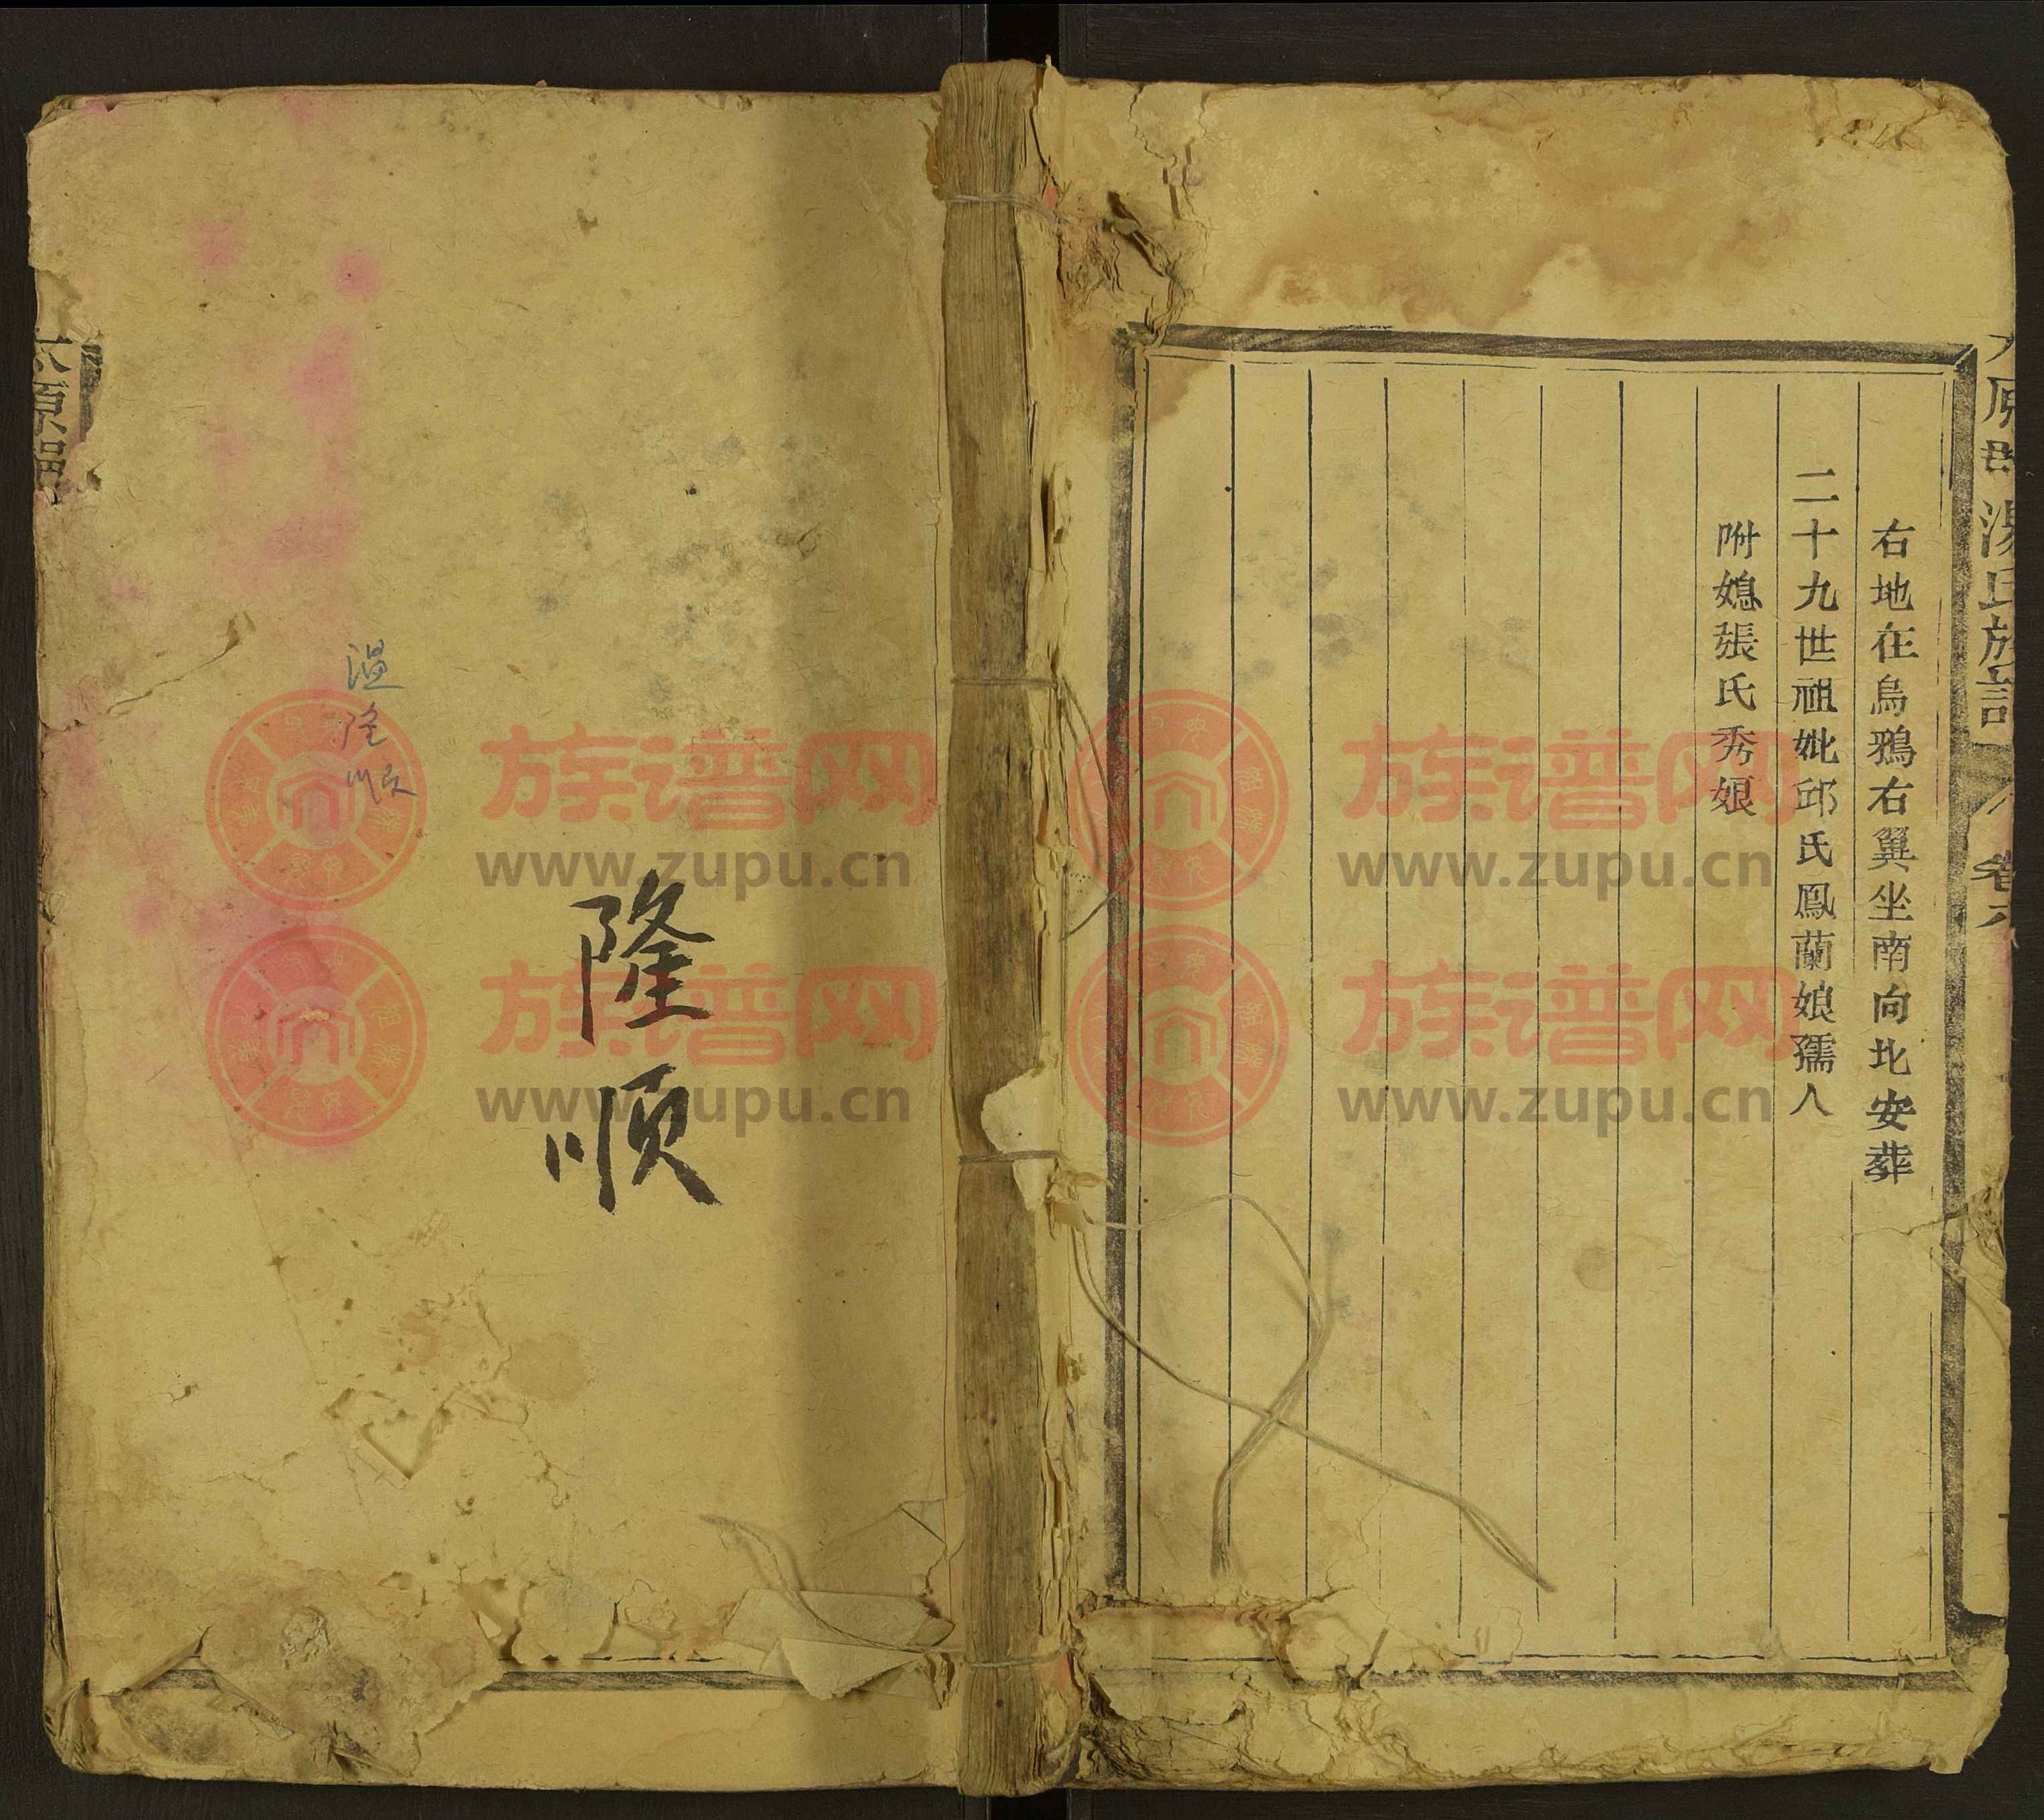 原郡湯氏族譜 卷六
右地在烏鴉右翼坐南向北安葬
二十九世祖妣邱氏鳳蘭娘孺人
附媳張氏秀娘
隆順
温隆順
原
族谱网
www.zupu.cn
族谱网
www.zupu.cn
族谱网
www.zupu.cn
族谱网
www.zupu.cn